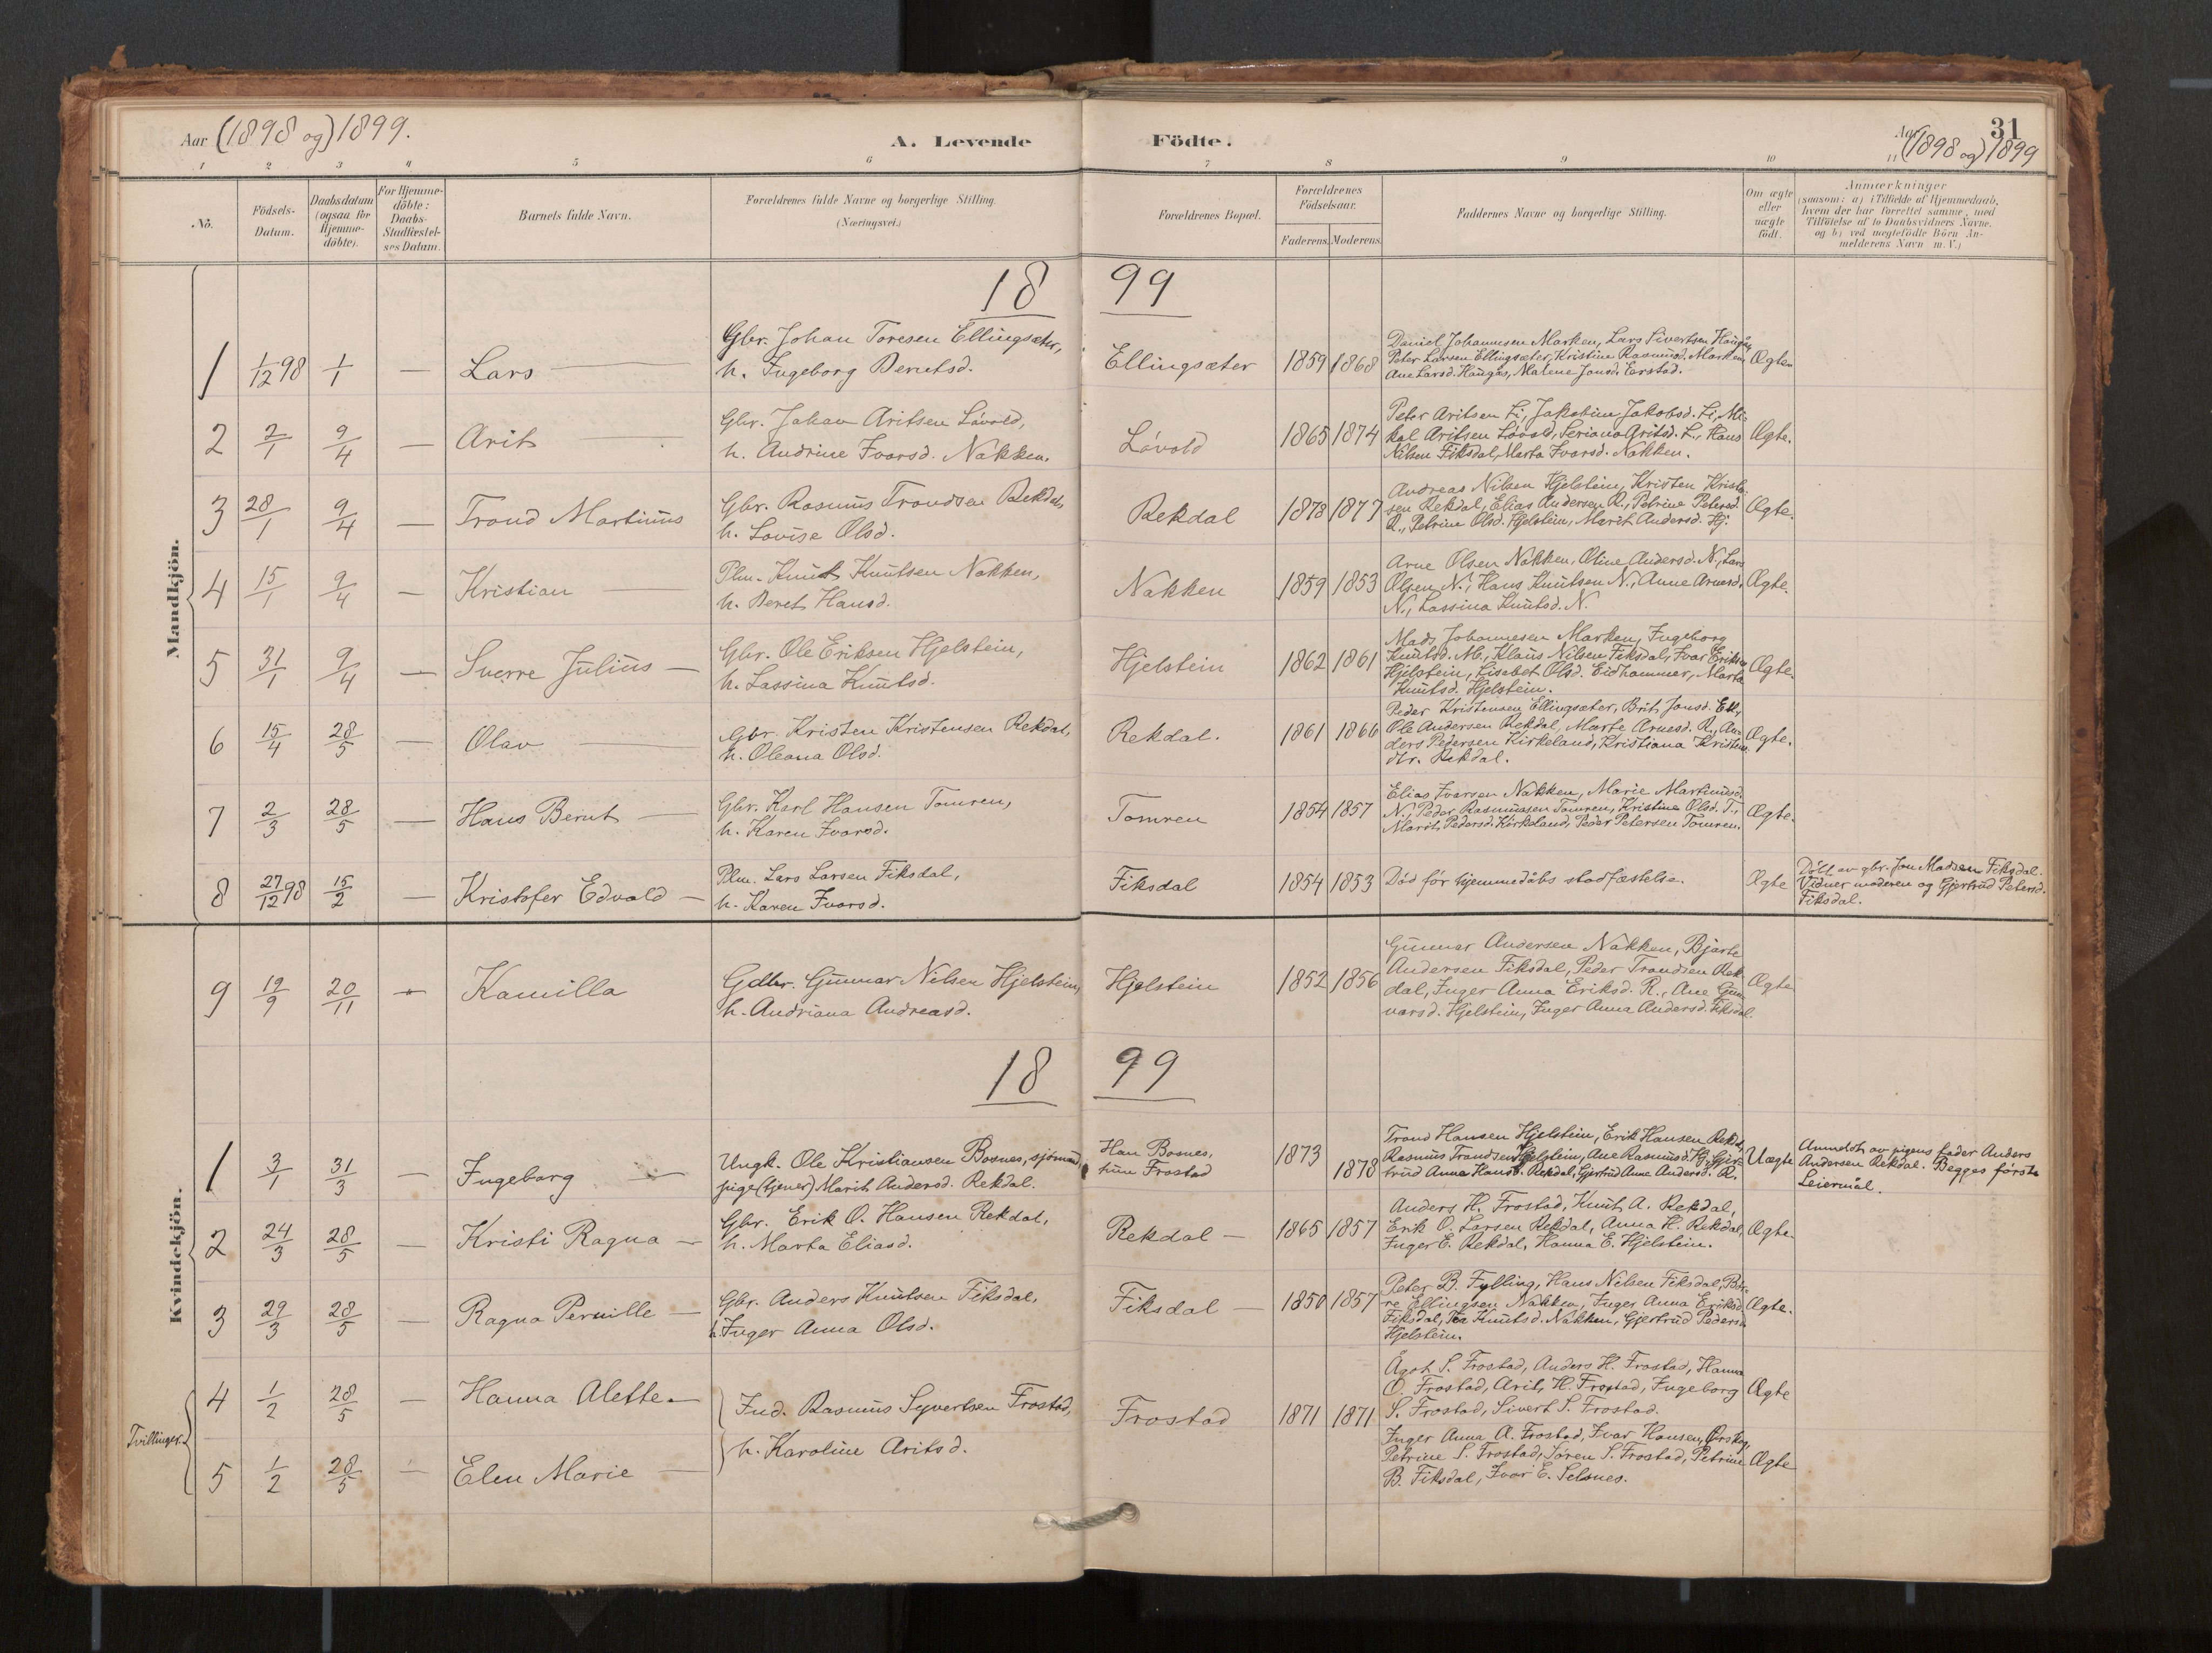 Aar (1898 og) 1899.
A. Levende
Födte.
31
Aar (1898 og) 1899
1 2 3 4 5 6 7 8 9 10 11
No.
Födsels-
Datum.
Daabsdatum
(ogsaa for
Hjemme-
döbte).
For Hjemme-
döbte:
Daabs-
Stadfæstel-
ses Datum.
Barnets fulde Navn.
Forældrenes fulde Navne og borgerlige Stilling.
(Næringsvei.)
Forældrenes Bopæl.
Forældrenes
Födselsaar.
Faderens. Moderens.
Faddernes Navne og borgerlige Stilling.
Om ægte
eller
uægte
födt.
Anmærkninger
(saasom: a) i Tilfælde af Hjemmedaab,
hvem der har forrettet samme, med
Tilföielse af to Daabsvidners Navne.
og b) ved uægtefödte Börn An-
melderens Navn m. V.)
Mandkjön.
18 99
1 1/12 98 1/1 — Lars —
Gbr. Johan Toresen Ellingsæter,
h. Ingeborg Berntsd.
Ellingsæter 1859 1868
Daniel Johannesen Marken, Lars Sivertsen Haugås,
Peter Larsen Ellingsæter, Kristine Rasmusd. Marken,
Ane Larsd. Haugås, Malene Jonsd. Eerstad.
Ægte.
2 2/1 9/4 — Arit
Gbr. Johan Aritsen Lövold,
h. Andrine Ivarsd. Nakken.
Lövold 1865 1874
Peter Aritsen Li, Jakobine Jakobsd. Li, Mi-
kal Aritsen Lövold, Seriana Aritsd. L., Hans
Nilsen Fiksdal, Marta Ivarsd. Nakken.
Ægte.
3 28/1 9/4 — Trond Martinus
Gbr. Rasmus Trondsen Rekdal,
h. Lovise Olsd.
Rekdal 1878 1877
Andreas Nilsen Hjelstein, Kristen Kristen-
sen Rekdal, Elias Andersen R., Petrine Petersd.
R., Petrine Olsd. Hjelstein, Marit Andersd. Hj.
Ægte.
4 15/1 9/4 — Kristian —
Plm. Knut Knutsen Nakken,
h. Beret Hansd.
Nakken 1859 1853
Arne Olsen Nakken, Oline Andersd. N., Lars
Olsen N., Hans Knutsen N., Anne Arnesd.
N., Lassina Knutsd. N.
Ægte.
5 31/1 9/4 — Sverre Julius —
Gbr. Ole Eriksen Hjelstein,
h. Lassina Knutsd.
Hjelstein 1862 1861
Mads Johannesen Marken, Ingeborg
Knutsd. M., Klaus Nilsen Fiksdal, Ivar Eriksen
Hjelstein, Lisabet Olsd. Eidhammer, Marta
Knutsd. Hjelstein.
Ægte.
6 15/4 28/5 — Olav —
Gbr. Kristen Kristensen Rekdal,
h. Oleana Olsd.
Rekdal. 1861 1866
Peder Kristensen Ellingsæter, Brit Jonsd. Ell.,
Ole Andersen Rekdal, Marte Arnesd. R., An-
ders Pedersen Kirkeland, Kristiana Kristens-
dtr. Rekdal.
Ægte.
7 2/3 28/5 — Hans Bernt —
Gbr. Karl Hansen Tomren,
h. Karen Ivarsd.
Tomren 1854 1857
Elias Ivarsen Nakken, Marie Martinusd.
N., Peder Rasmussen Tomren, Kristine Olsd. T.,
Marit Pedersd. Kirkeland, Peder Petersen Tomren.
Ægte.
8 27/12 98 15/2 — Kristofer Edvald —
Plm. Lars Larsen Fiksdal,
h. Karen Ivarsd.
Fiksdal 1854 1853
Död för hjemmedåbs stadfæstelse.
Ægte
Döbt av gbr. Jon Madsen Fiksdal.
Vidner moderen og Gjertrud Petersd.
Fiksdal.
9 19/9 20/11 — Kamilla
Gdbr. Gunnar Nilsen Hjelstein,
h. Andriana Andreasd.
Hjelstein 1852 1856
Gunnar Andersen Nakken, Bjarte
Andersen Fiksdal, Peder Trondsen Rek-
dal, Inger Anna Eriksd. R., Ane Gun-
narsd. Hjelstein, Inger Anna Andersd. Fiksdal.
Ægte
18 99
Kvindekjön.
1 3/1 31/3 — Ingeborg —
Ungk. Ole Kristiansen Bosnes, sjömand,
pige (tjener) Marit Andersd. Rekdal.
Han Bosnes,
hun Frostad
1873 1878
Trond Hansen Hjelstein, Erik Hansen Rekdal,
Rasmus Trondsen Hjelstein, Ane Rasmusd. Hj., Gjer-
trud Anna Hansd. Rekdal, Gjertrud Anne Andersd. R.
Uægte
Anmeldt av pigens fader Anders
Andersen Rekdal. Begges förste
Leiermål.
2 24/3 28/5 — Kristi Ragna —
Gbr. Erik O. Hansen Rekdal,
h. Marta Eliasd.
Rekdal — 1865 1857
Anders H. Frostad, Knut A. Rekdal,
Erik O. Larsen Rekdal, Anna H. Rekdal,
Inger E. Rekdal, Hanna E. Hjelstein.
Ægte.
3 29/3 28/5 — Ragna Pernille —
Gbr. Anders Knutsen Fiksdal,
h. Inger Anna Olsd.
Fiksdal — 1850 1857
Peter B. Fylling, Hans Nilsen Fiksdal, Bår-
re Ellingsen Nakken, Inger Anna Eriksd.
Fiksdal, Knutsd. Nakken, Gjertrud Pedersd.
Hjelstein.
Ægte.
Tvillinger.
4 1/2 28/5 — Hanna Alette —
Ind. Rasmus Syvertsen Frostad,
h. Karoline Aritsd.
Frostad 1871 1871
Ågot S. Frostad, Anders H. Frostad, Hanna
O. Frostad, Arit H. Frostad, Ingeborg
S. Frostad, Sivert S. Frostad.
Ægte
5 1/2 28/5 — Elen Marie —
Inger Anna A. Frostad, Ivar Hansen Örskog,
Petrine S. Frostad, Sören S. Frostad, Petrine
B. Fiksdal, Ivar E. Selsnes.
Ægte